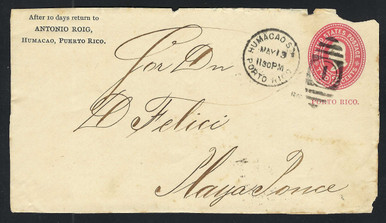 After 10 days return to
ANTONIO ROIG,
HUMACAO, PUERTO RICO.
HUMACAO
MAY 13
1130PM
PORTO RICO
STATES POSTAGE
CENTS
PORTO RICO.
Sor Dn
D Felici
Playa Ponce